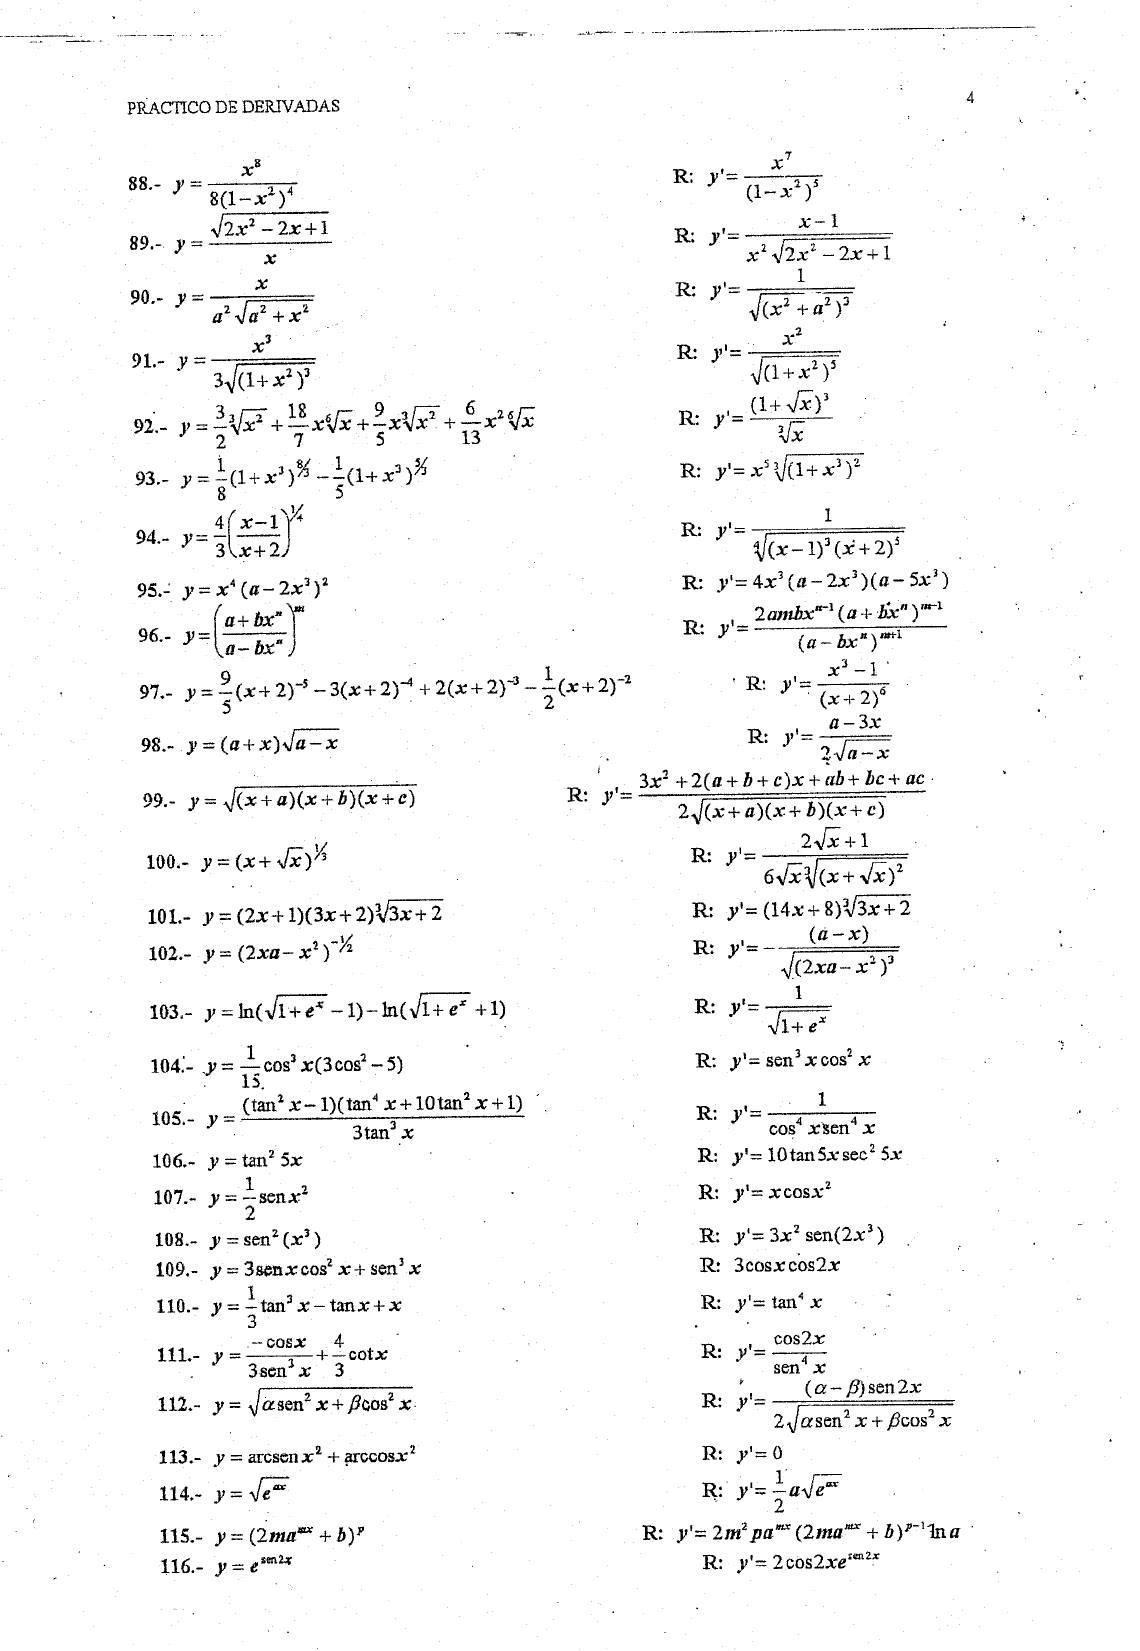 PRACTICO DE DERIVADAS 4
88.- y = x⁸ / 8(1−x²)⁴ R: y'= x⁷ / (1−x²)⁵
89.- y = √(2x² − 2x+1) / x R: y'= x−1 / x²√(2x² − 2x+1)
90.- y = x / a²√(a² + x²) R: y'= 1 / √((x² + a²)³)
91.- y = x³ / 3√((1+ x²)³) R: y'= x² / √((1+x²)⁵)
92.- y = 3/2 ∛(x²) + 18/7 x ⁶√x + 9/5 x ∛(x²) + 6/13 x² ⁶√x R: y'= (1+ √x)³ / ∛x
93.- y = 1/8 (1+x³)^(8/3) − 1/5 (1+x³)^(5/3) R: y'= x⁵ ∛((1+x³)²)
94.- y= 4/3 (x−1 / x+2)^(1/4) R: y'= 1 / ⁴√((x−1)³(x+2)⁵)
95.- y = x⁴(a−2x³)² R: y'= 4x³(a−2x³)(a−5x³)
96.- y= (a+bxⁿ / a−bxⁿ)^m R: y'= 2ambxⁿ⁻¹(a+bxⁿ)^(m−1) / (a−bxⁿ)^(m+1)
97.- y = 9/5 (x+2)⁻⁵ −3(x+2)⁻⁴ +2(x+2)⁻³ − 1/2 (x+2)⁻² R: y'= x³ −1 / (x+2)⁶
98.- y = (a+x)√(a−x) R: y'= a−3x / 2√(a−x)
99.- y = √((x+a)(x+b)(x+c)) R: y'= 3x² +2(a+b+c)x+ab+bc+ac / 2√((x+a)(x+b)(x+c))
100.- y = (x+ √x)^(1/3) R: y'= 2√x +1 / 6√x ∛((x+√x)²)
101.- y = (2x+1)(3x+2)∛(3x+2) R: y'= (14x+8)∛(3x+2)
102.- y = (2xa−x²)^(−1/2) R: y'= − (a−x) / √((2xa−x²)³)
103.- y = ln(√(1+e^x) −1)−ln(√(1+e^x) +1) R: y'= 1 / √(1+e^x)
104.- y = 1/15 cos³ x(3cos² −5) R: y'= sen³ x cos² x
105.- y = (tan² x−1)(tan⁴ x+10tan² x+1) / 3tan³ x R: y'= 1 / cos⁴ xsen⁴ x
106.- y = tan² 5x R: y'= 10tan5x sec² 5x
107.- y = 1/2 senx² R: y'= xcosx²
108.- y = sen²(x³) R: y'= 3x² sen(2x³)
109.- y = 3senxcos² x+ sen³ x R: 3cosxcos2x
110.- y = 1/3 tan³ x − tanx + x R: y'= tan⁴ x
111.- y = −cosx / 3sen³ x + 4/3 cotx R: y'= cos2x / sen⁴ x
112.- y = √(αsen² x+βcos² x) R: y'= (α−β)sen2x / 2√(αsen² x+βcos² x)
113.- y = arcsenx² + arccosx² R: y'= 0
114.- y = √(e^(ax)) R: y'= 1/2 a√(e^(ax))
115.- y = (2ma^(mx) + b)^p R: y'= 2m² pa^(mx)(2ma^(mx) + b)^(p−1) ln a
116.- y = e^(sen2x) R: y'= 2cos2xe^(sen2x)